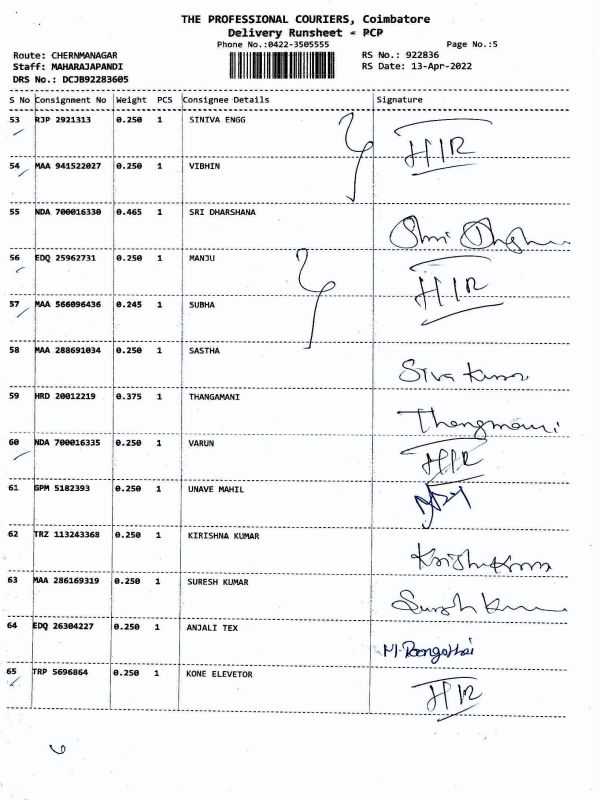 THE PROFESSIONAL COURIERS, Coimbatore
Delivery Runsheet - PCP
Phone No.:0422-3505555 Page No.:5
Route: CHERNMANAGAR RS No.: 922836
Staff: MAHARAJAPANDI RS Date: 13-Apr-2022
DRS No.: DCJB92283605
S No Consignment No Weight PCS Consignee Details Signature
53 RJP 2921313 0.250 1 SINIVA ENGG
HIR
54 MAA 941522027 0.250 1 VIBHIN
55 NDA 700016330 0.465 1 SRI DHARSHANA
56 EDQ 25962731 0.250 1 MANJU
HIR
57 MAA 566096436 0.245 1 SUBHA
58 MAA 288691034 0.250 1 SASTHA
Siva Kumar
59 HRD 20012219 0.375 1 THANGAMANI
Thangmani
60 NDA 700016335 0.250 1 VARUN
HIR
61 GPM 5182393 0.250 1 UNAVE MAHIL
62 TRZ 113243368 0.250 1 KIRISHNA KUMAR
63 MAA 286169319 0.250 1 SURESH KUMAR
64 EDQ 26304227 0.250 1 ANJALI TEX
65 TRP 5696864 0.250 1 KONE ELEVETOR
HIR